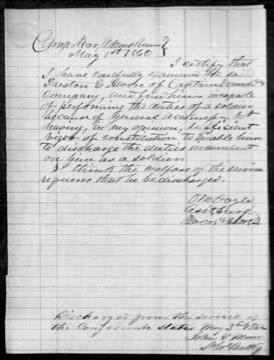 Camp Near Adams Run
May 1st 1862
I certify that
I have carefully examined the said
Preston C Moore of Captain
Company, and find him incapable
of performing the duties of a soldier
because of General weakness, not
having, in my opinion, sufficient
vigor of constitution to enable him
to discharge the duties incumbent
on him as a soldier.
I think the welfare of the service
requires that he be discharged.
Asst Surg
Discharged from the service of
the Confederate States May 3rd 1862
John